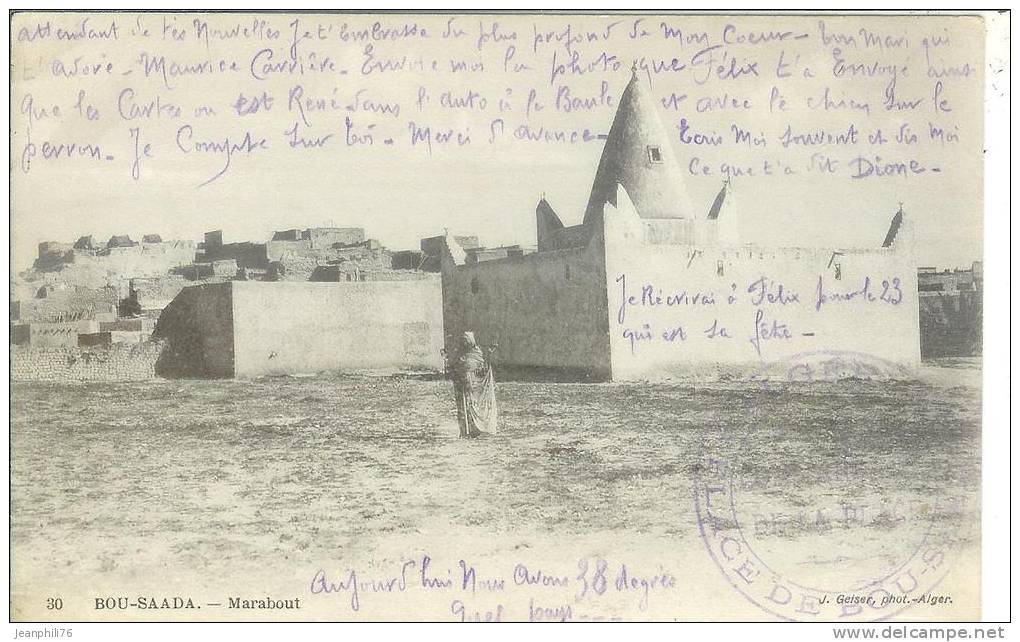 attendant de tes Nouvelles Je t'Embrasse du plus profond de Mon Coeur - ton Mari qui
t'adore - Maurice Carrière - Envoie moi la photo que Félix t'a Envoyé ainsi
que les Cartes ou est René dans l'auto à le Baule et avec le chien sur le
perron - Je Compte sur toi - Merci d'avance - Ecris Moi souvent et dis Moi
Ce que t'a dit Dione -
Je Récrirai à Félix pour le 23
qui est sa fête -
PLACE DE BOU-SA
DE LA PLACE
Aujourd'hui Nous Avons 38 degrés
Quel pays - - -
30 BOU-SAADA. — Marabout
J. Geiser, phot.-Alger.
http://www.delcampe.net
jeanphili76